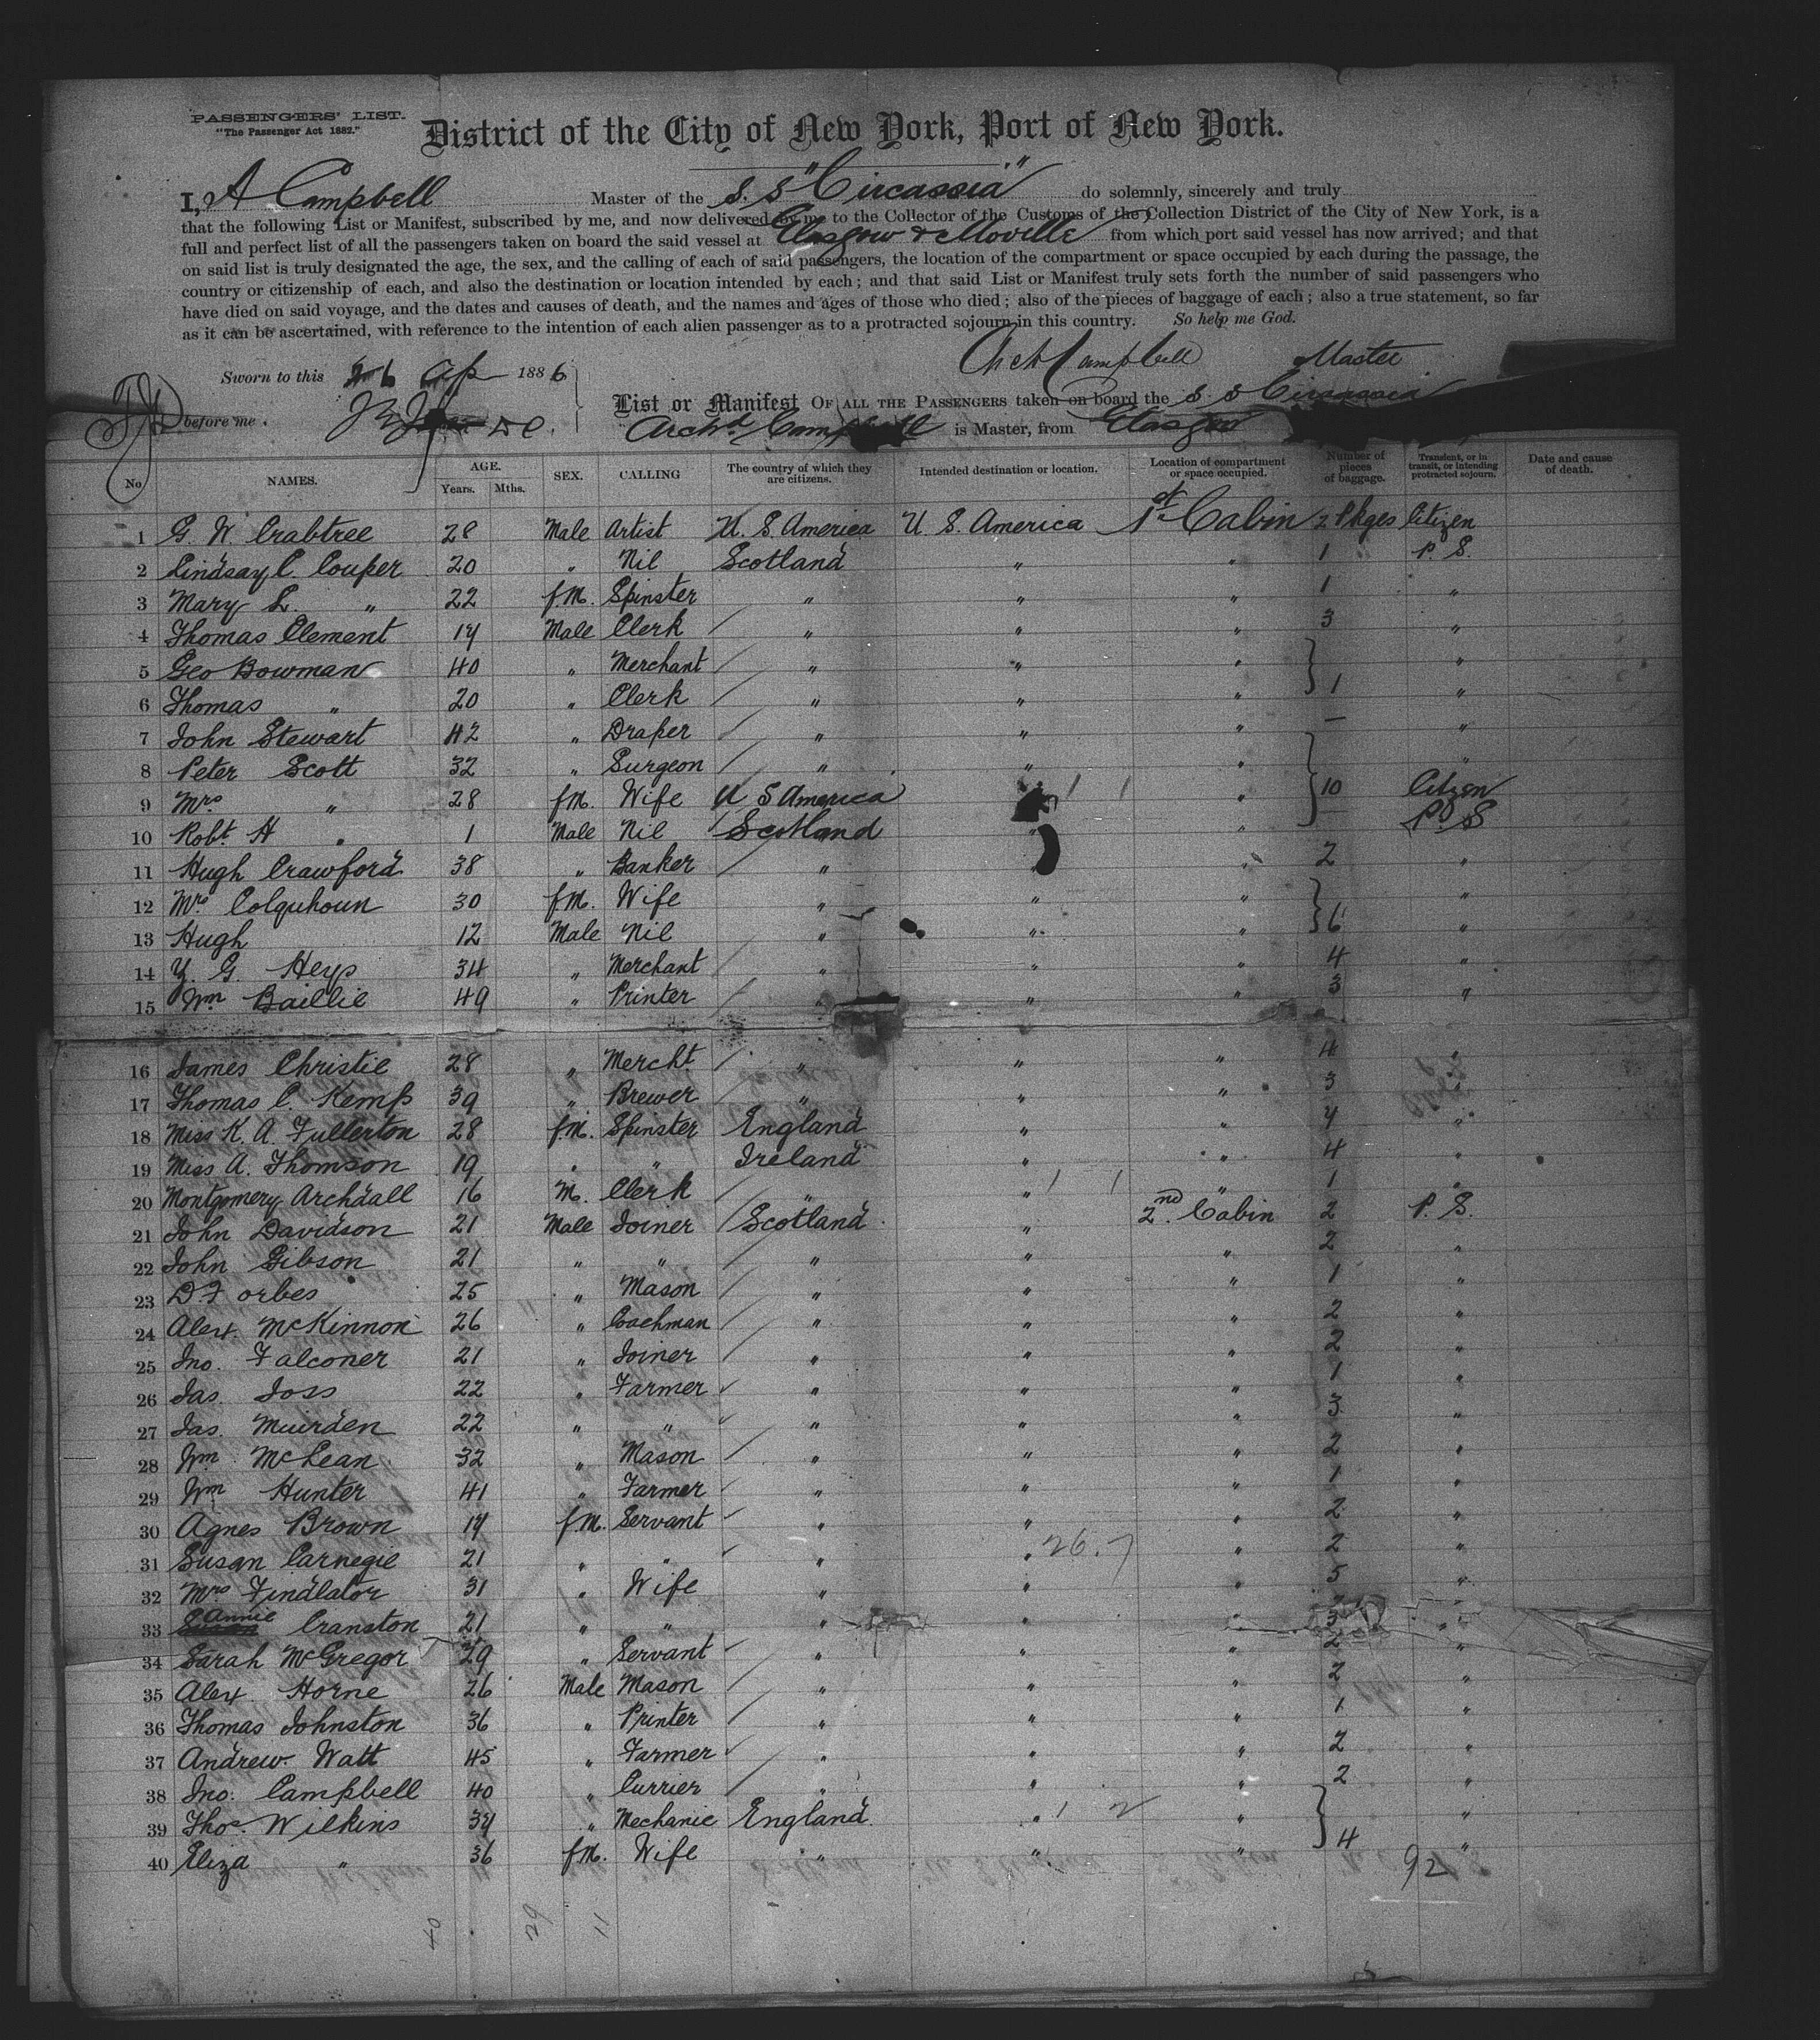 PASSENGERS' LIST.
"The Passenger Act 1882."
District of the City of New York, Port of New York.
I, A Campbell Master of the S. S "Circassia" do solemnly, sincerely and truly
that the following List or Manifest, subscribed by me, and now delivered by me to the Collector of the Customs of the Collection District of the City of New York, is a
full and perfect list of all the passengers taken on board the said vessel at Glasgow & Moville from which port said vessel has now arrived; and that
on said list is truly designated the age, the sex, and the calling of each of said passengers, the location of the compartment or space occupied by each during the passage, the
country or citizenship of each, and also the destination or location intended by each; and that said List or Manifest truly sets forth the number of said passengers who
have died on said voyage, and the dates and causes of death, and the names and ages of those who died; also of the pieces of baggage of each; also a true statement, so far
as it can be ascertained, with reference to the intention of each alien passenger as to a protracted sojourn in this country. So help me God.
Archd Campbell Master
Sworn to this 26 Ap 1886
before me
List or Manifest OF ALL THE PASSENGERS taken on board the S S Circassia
Archd Campbell is Master, from Glasgow
No NAMES. AGE. Years. Mths. SEX. CALLING The country of which they are citizens. Intended destination or location. Location of compartment or space occupied. Number of pieces of baggage. Transient, or in transit, or intending protracted sojourn. Date and cause of death.
1 G. W. Crabtree 28 Male Artist U. S. America U. S. America 1st Cabin 2 Pkges Citizen
2 Lindsay C. Couper 20 " Nil Scotland " " 1 P. S.
3 Mary L. " 22 f.M. Spinster " " " 1 "
4 Thomas Clement 17 Male Clerk " " " 3 "
5 Geo Bowman 40 " Merchant " " " "
6 Thomas " 20 " Clerk " " " 1 "
7 John Stewart 42 " Draper " " " — "
8 Peter Scott 32 " Surgeon " " " "
9 Mrs " 28 f.M. Wife U S America 1 1 " 10 Citizen
10 Robt. H " 1 Male Nil Scotland " " P. S
11 Hugh Crawford 38 " Banker " " " 2 "
12 Mrs. Colquhoun 30 f.M. Wife " " " "
13 Hugh 12 Male Nil " " " 6 "
14 Y. G. Heys 34 " Merchant " " " 4 "
15 Wm Baillie 49 " Printer " " " 3 "
16 James Christie 28 " Mercht. " " " 4 "
17 Thomas C. Kemp 39 " Brewer " " " 3 "
18 Miss K. A. Fullerton 28 f.M. Spinster England " " 7 "
19 Miss A. Thomson 19 " " Ireland " " 4 "
20 Montgomery Archdall 16 M. Clerk " " 1 1 " 1 "
21 John Davidson 21 Male Joiner Scotland " 2nd. Cabin 2 P. S.
22 John Gibson 21 " " " " " 2 "
23 D Forbes 25 " Mason " " " 1 "
24 Alex. McKinnon 26 " Coachman " " " 2 "
25 Jno. Falconer 21 " Joiner " " " 2 "
26 Jas. Joss 22 " Farmer " " " 1 "
27 Jas. Muirden 22 " " " " " 3 "
28 Wm McLean 32 " Mason " " " 2 "
29 Wm Hunter 41 " Farmer " " " 1 "
30 Agnes Brown 17 f.M. Servant " " " 2 "
31 Susan Carnegie 21 " " " " 26.7 " 2 "
32 Mrs Findlator 31 " Wife " " " 5 "
33 Annie Cranston 21 " " " " " 3 "
34 Sarah McGregor 29 " Servant " " " 2 "
35 Alex Horne 26 Male Mason " " " 2 "
36 Thomas Johnston 36 " Printer " " " 1 "
37 Andrew Watt 45 " Farmer " " " 2 "
38 Jno. Campbell 40 " Currier " " " 2 "
39 Thos. Wilkins 37 " Mechanic England " 1 2 " "
40 Eliza " 36 f.M. Wife " " " 4 "
92
40 29 11